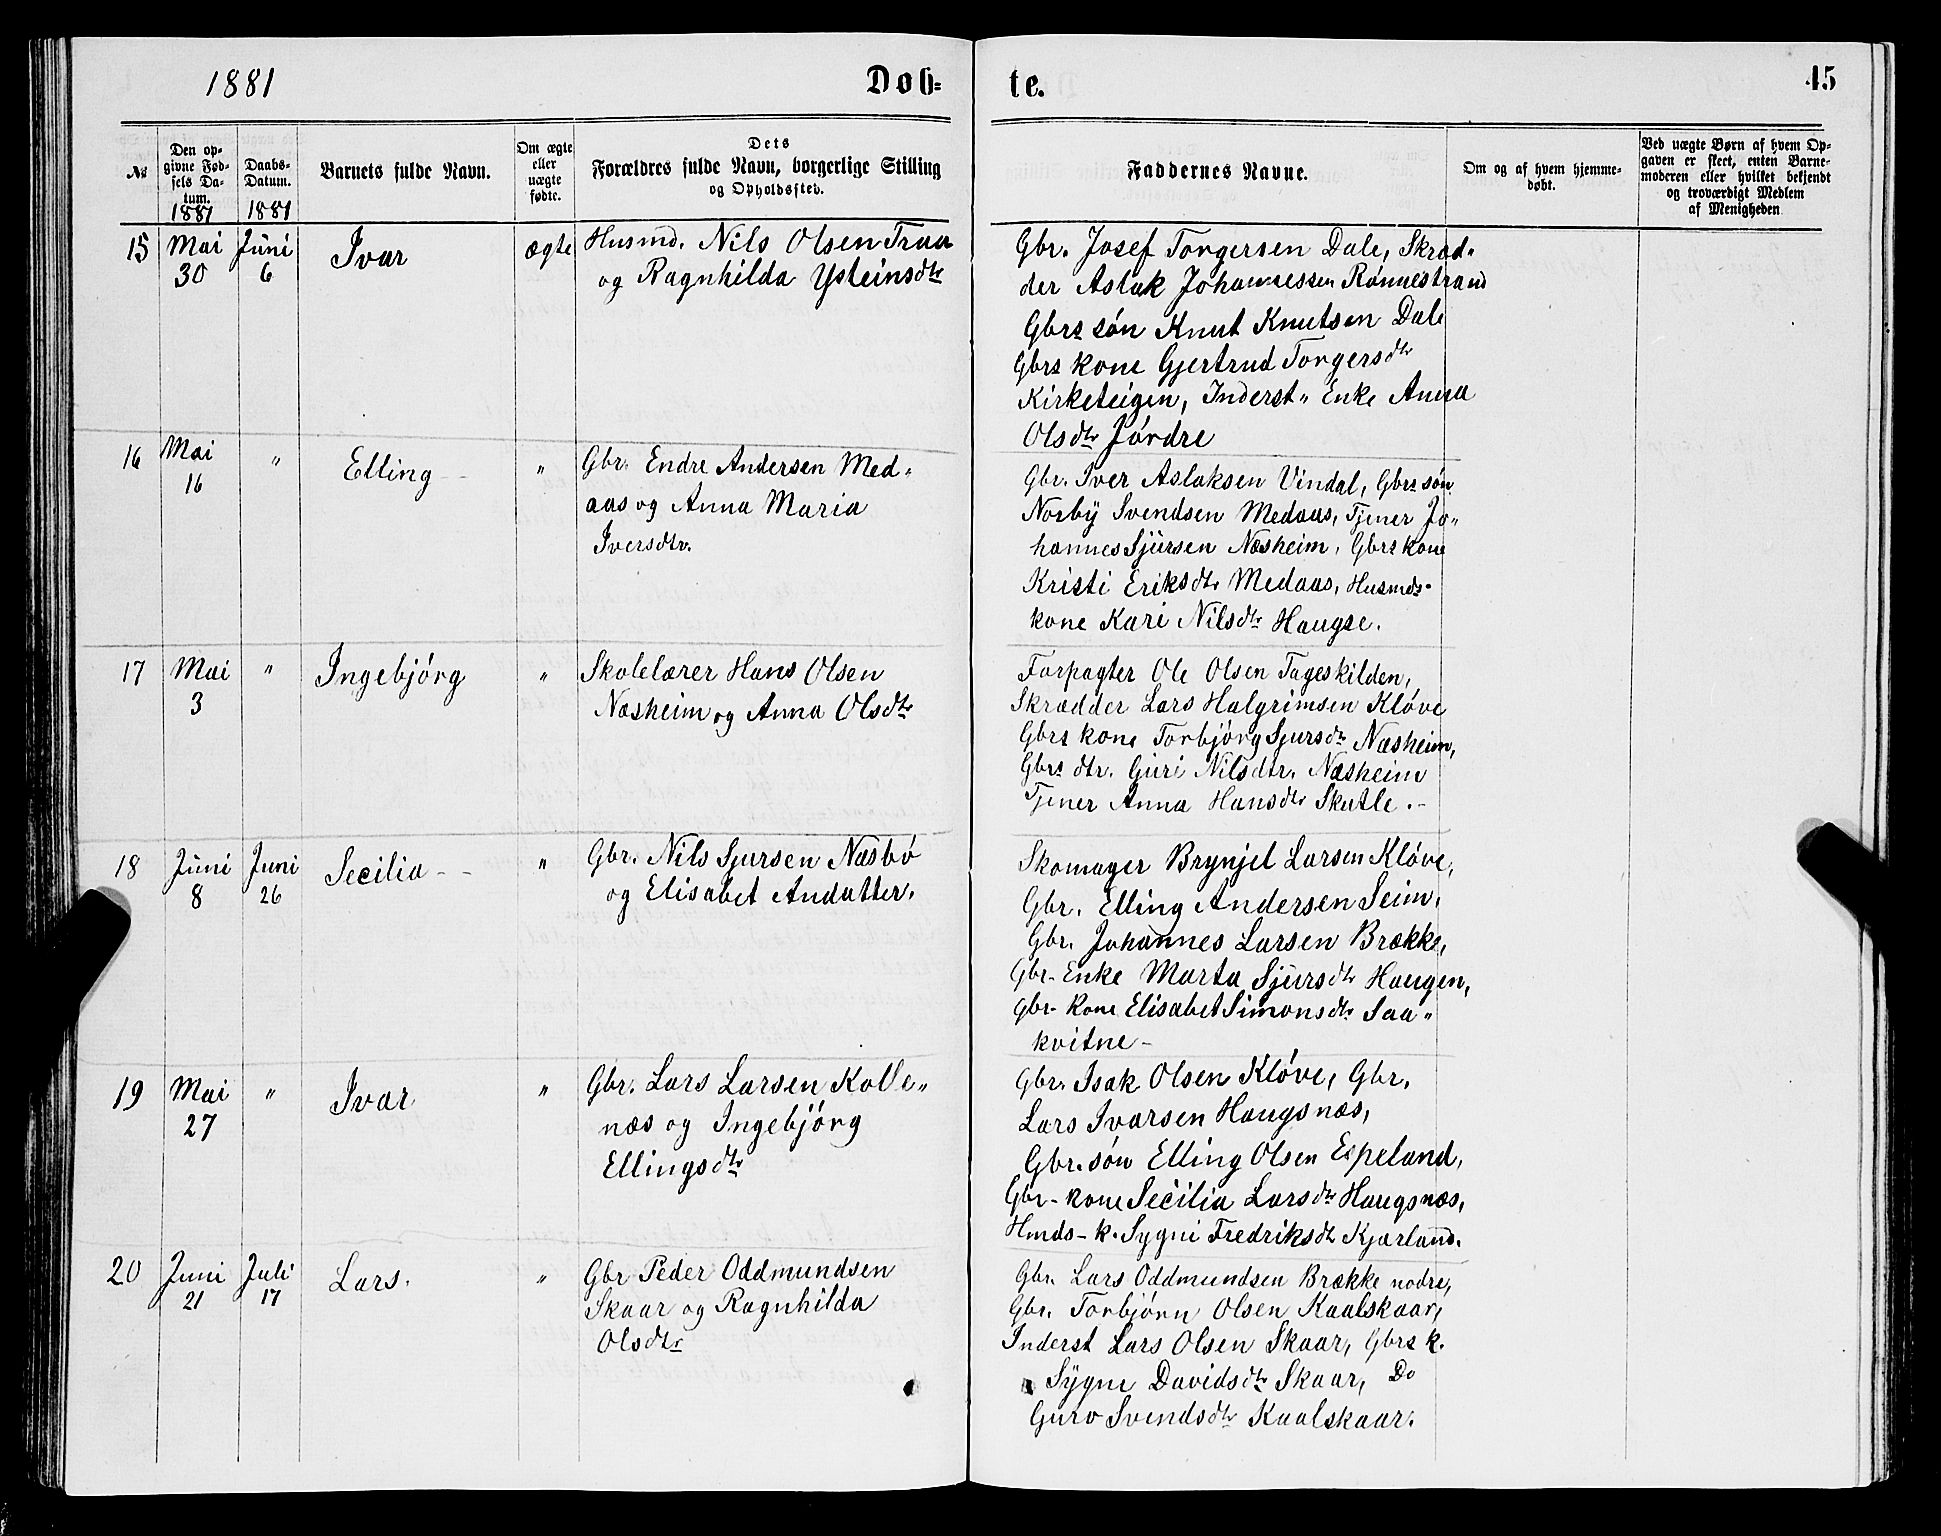 1881
Døb=
te.
45
№
Den op-
givne Fød-
sels Da-
tum.
1881
Daabs-
Datum.
1881
Barnets fulde Navn.
Om ægte
eller
uægte
fødte.
Dets
Forældres fulde Navn, borgerlige Stilling
og Opholdssted.
Faddernes Navne.
Om og af hvem hjemme-
døbt.
Ved uægte Børn af hvem Op-
gaven er skeet, enten Barne-
moderen eller hvilket bekjendt
og troværdigt Medlem
af Menigheden
15
Mai
30
Juni
6
Ivar
ægte
Husmd. Nils Olsen Traa
og Ragnhilda Ysteinsdtr
Gbr. Josef Torgersen Dale, Skræd-
der Aslak Johannessen Rønnestrand
Gbrs søn Knut Knutsen Dale
Gbrs kone Gjertrud Torgersdtr
Kirketeigen, Inderst" Enke Anna
Olsdtr Jørdre
16
Mai
16
"
Elling
"
Gbr. Endre Andersen Med-
aas og Anna Maria
Iversdtr.
Gbr. Iver Aslaksen Vindal, Gbrs søn
Norby Svendsen Medaas, Tjener Jo"
hannes Sjursen Næsheim, Gbrs kone
Kristi Eriksdtr Medaas, Husmds-
kone Kari Nilsdtr Haugse.
17
Mai
3
"
Ingebjørg
"
Skolelærer Hans Olsen
Næsheim og Anna Olsdtr
Forpagter Ole Olsen Tageskilden,
Skrædder Lars Halgrimsen Kløve
Gbrs kone Torbjørg Sjursdtr Næsheim,
Gbrs dtr. Guri Nilsdtr. Næsheim
Tjener Anna Hansdtr Skutle.-
18
Juni
8
Juni
26
Secilia - -
"
Gbr. Nils Sjursen Næsbø
og Elisabet Andatter.
Skomager Brynjel Larsen Kløve,
Gbr. Elling Andersen Seim,
Gbr. Johannes Larsen Brække,
Gbr- Enke Marta Sjursdtr Haugen,
Gbr- kone Elisabet Simonsdtr Saa"
kvitne-
19
Mai
27
"
Ivar
"
Gbr. Lars Larsen Kolle"
næs og Ingebjørg
Ellingsdtr
Gbr. Isak Olsen Kløve, Gbr.
Lars Ivarsen Haugsnæs,
Gbr. søn Elling Olsen Espeland,
Gbr- kone Secilia Larsdtr Haugsnæs,
Hmds- k. Sygni Fredriksdtr Kjærland.
20
Juni
21
Juli
17
Lars.
"
Gbr Peder Oddmundsen
Skaar og Ragnhilda
Olsdtr
Gbr. Lars Oddmundsen Brække nodre,
Gbr. Torbjørn Olsen Kaalskaar,
Inderst Lars Olsen Skaar, Gbrs k.
Sygne Davidsdtr Skaar, Do
Guro Svendsdtr Kaalskaar.